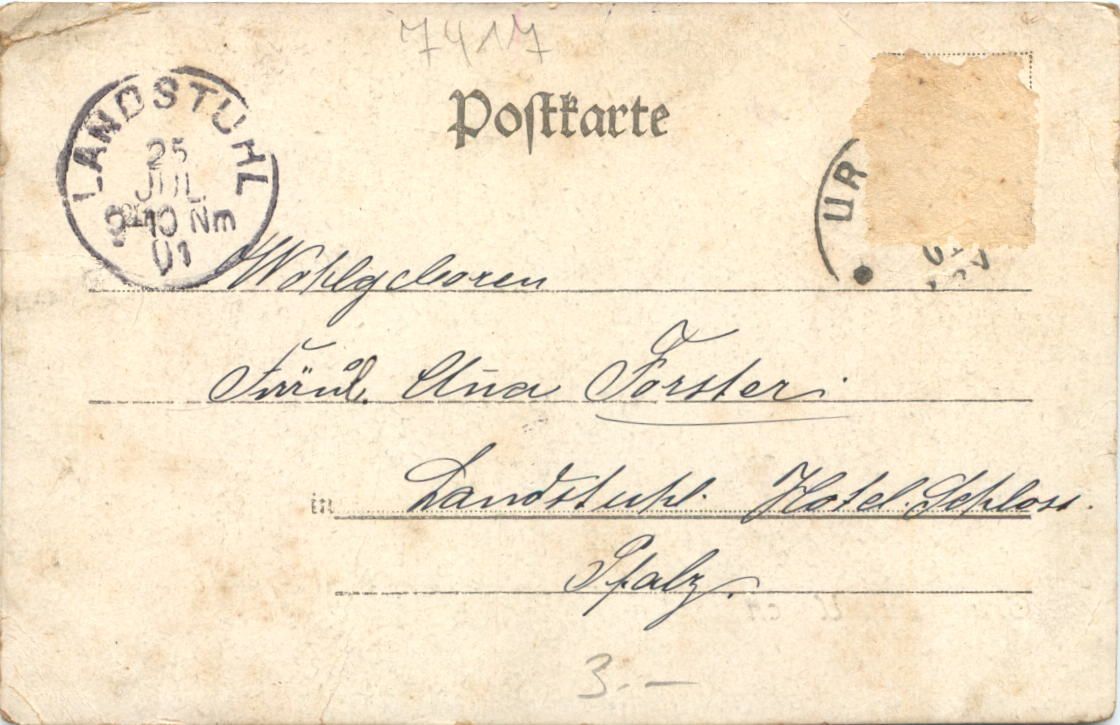 7417
Postkarte
LANDSTUHL
25
JUL
9-10 Nm
01
UR
Wohlgeboren
Fräul. Anna Forster.
in Landstuhl. Hotel. Schloss.
Pfalz.
3.-